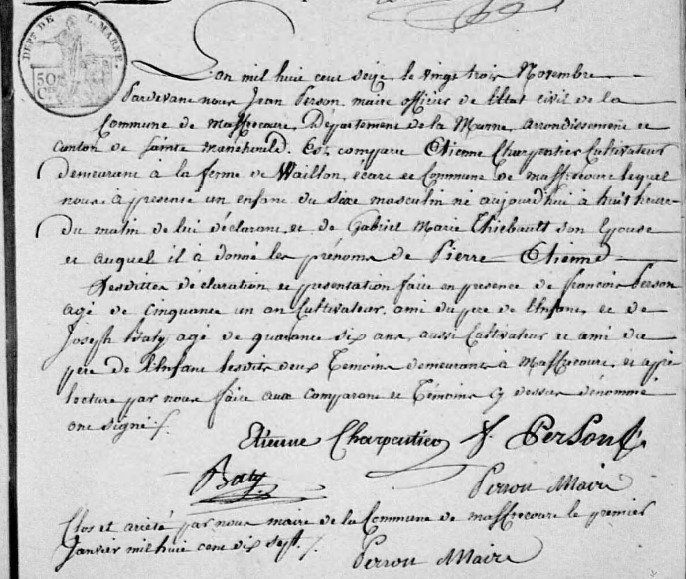 DEPT DE L. MARNE.
50
CES
L'an mil huit cent seize le vingt trois Novembre
Pardevant nous Jean Person maire officier de l'Etat civil de la
Commune de Maffrecourt, Département de la Marne, arrondissement et
canton de Sainte Manehould. Est comparu Etienne Charpentier Cultivateur
demeurant à la ferme de Waillon, écart et Commune de maffrecourt lequel
nous à présenté un enfant du sixe masculin né aujourd'hui à huit heure
du matin de lui déclarant et de Gabriel Marie Thiebault son Epouse
et auquel il à donné les prénoms de Pierre Etienne
Lesdittes déclaration et présentation faite en présence de françois Person
agé de cinquante un an Cultivateur, ami du pere de l'Enfant, et de
Joseph Baty agé de quarante six ans, aussi Cultivateur et ami du
père de l'Enfant lesdits deux Témoins demeurants à Maffrecourt, et après
lecture par nous faite aux comparant et Témoins cy dessus dénommé
ont signé /.
Etienne Charpentier f. Person
Baty
Person Maire
Clos et arrêté par nous maire de la Commune de maffrecourt le premier
Janvier mil huit cent dix sept /.
Person Maire